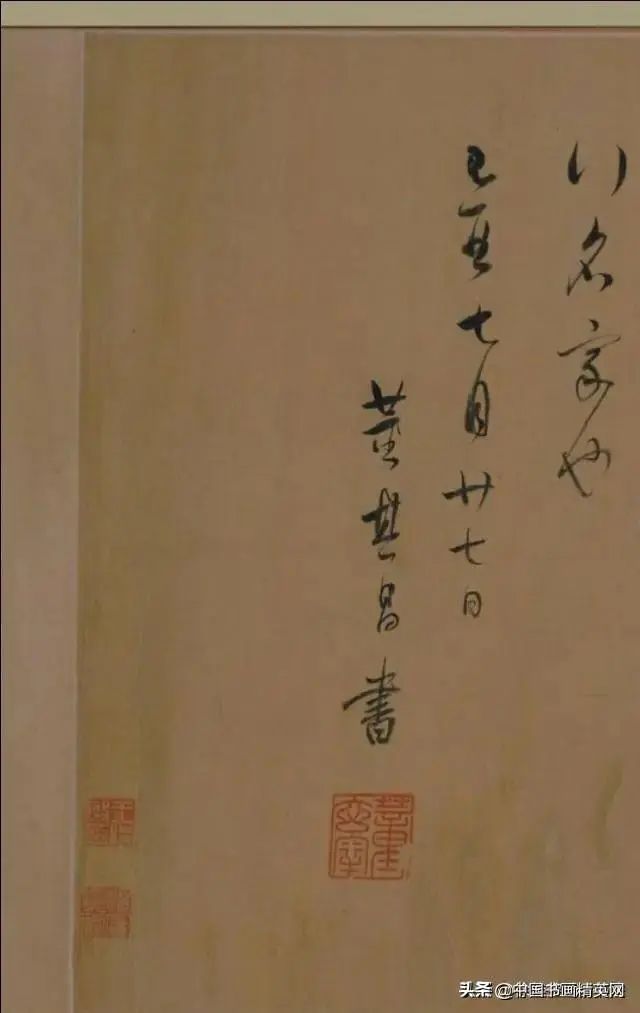 行名家也
己酉七月廿七日
董其昌書
头条 @中国书画精英网